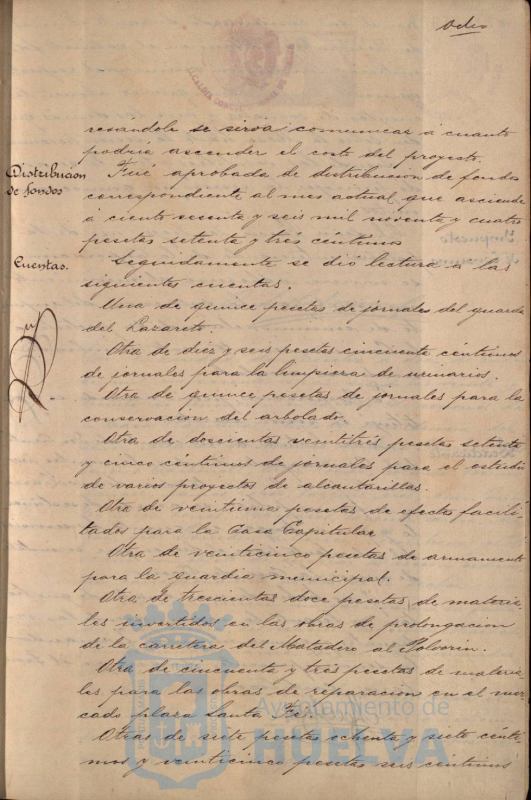 resándole se sirva comunicar á cuanto
podría ascender el costo del proyecto.
Distribucion
de fondos
Fué aprobada la distribucion de fondos
correspondiente al mes actual que asciende
á ciento sesenta y seis mil noventa y cuatro
pesetas setenta y trés céntimos
Cuentas.
Seguidamente se dió lectura á las
siguientes cuentas.
Una de quince pesetas de jornales del guarda
del Lazareto.
Otra de diez y seis pesetas cincuenta céntimos
de jornales para la limpieza de urinarios.
Otra de quince pesetas de jornales para la
conservacion del arbolado.
Otra de doscientas veintitres pesetas setenta
y cinco céntimos de jornales para el estudio
de varios proyectos de alcantarillas.
Otra de veintiuna pesetas de efectos facili
tados para la Casa Capitular
Otra de veinticinco pesetas de armamento
para la guardia municipal.
Otra de trescientas doce pesetas de materia
les invertidos en las obras de prolongacion
de la carretera del Matadero al Polvorin.
Otra de cincuenta y tres pesetas de materia
les para las obras de reparacion en el mer
cado plaza Santa Fé.
Otras de siete pesetas ochenta y siete cénti
mos y veinticinco pesetas seis céntimos
Ayuntamiento de
HUELVA